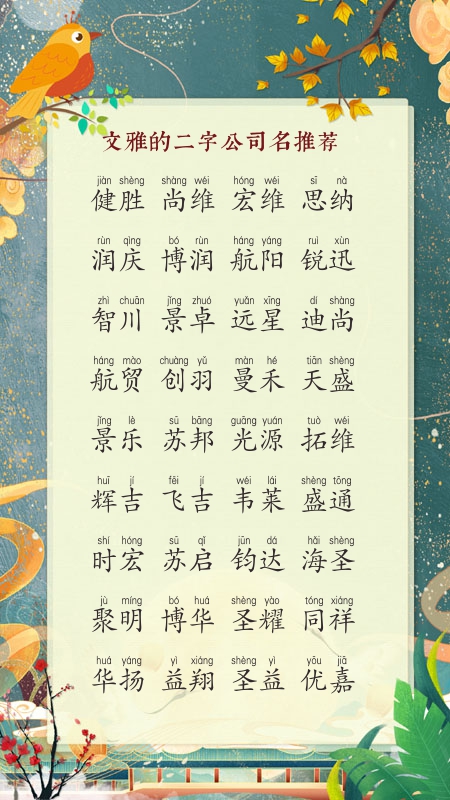 文雅的二字公司名推荐
jiàn shèng shàng wéi hóng wéi sī nà
健胜 尚维 宏维 思纳
rùn qìng bó rùn háng yáng ruì xùn
润庆 博润 航阳 锐迅
zhì chuān jǐng zhuó yuǎn xīng dí shàng
智川 景卓 远星 迪尚
háng mào chuàng yǔ màn hé tiān shèng
航贸 创羽 曼禾 天盛
jǐng lè sū bāng guāng yuán tuò wéi
景乐 苏邦 光源 拓维
huī jí fēi jí wéi lái shèng tōng
辉吉 飞吉 韦莱 盛通
shí hóng sū qǐ jūn dá hǎi shèng
时宏 苏启 钧达 海圣
jù míng bó huá shèng yào tóng xiáng
聚明 博华 圣耀 同祥
huá yáng yì xiáng shèng yì yōu jiā
华扬 益翔 圣益 优嘉